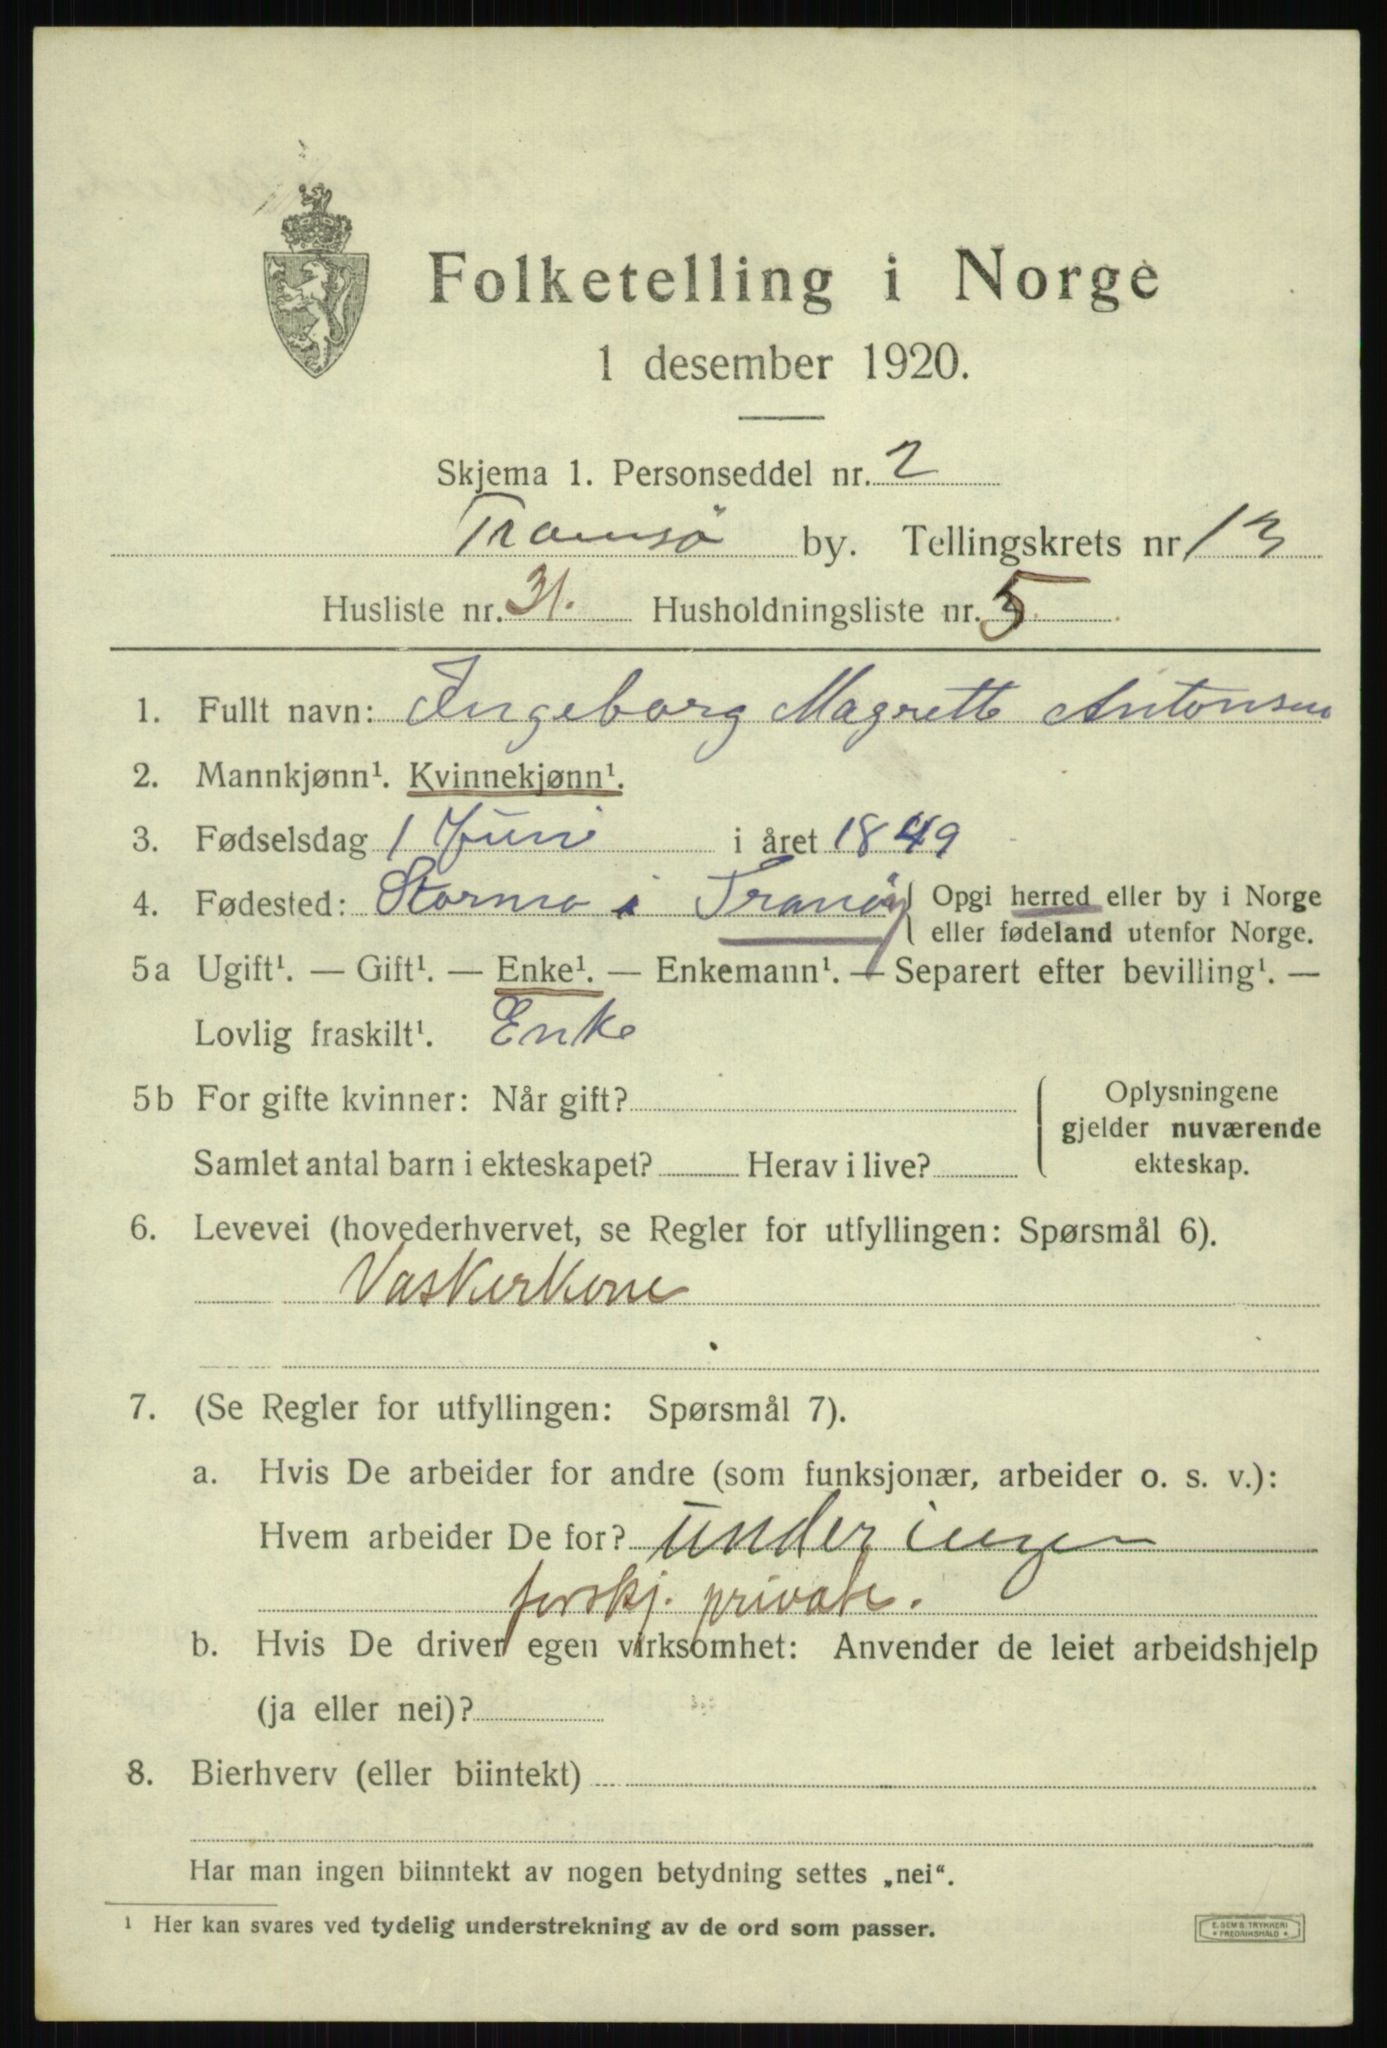 Folketelling i Norge
1 desember 1920.
Skjema 1. Personseddel nr. 2
Tromsö by. Tellingskrets nr 13
Husliste nr. 31. Husholdningsliste nr. 5
1. Fullt navn: Ingeborg Magrette Antonsen
2. Mannkjønn¹. Kvinnekjønn¹.
3. Fødselsdag 1 Juni i året 1849
4. Fødested: Stormo i Tranöy Opgi herred eller by i Norge
eller fødeland utenfor Norge.
5a Ugift¹. — Gift¹. — Enke¹. — Enkemann¹. — Separert efter bevilling¹. —
Lovlig fraskilt¹. Enke
5b For gifte kvinner: Når gift? Oplysningene
gjelder nuværende
Samlet antal barn i ekteskapet? Herav i live? ekteskap.
6. Levevei (hovederhvervet, se Regler for utfyllingen: Spørsmål 6).
Vaskerkone
7. (Se Regler for utfyllingen: Spørsmål 7).
a. Hvis De arbeider for andre (som funksjonær, arbeider o. s. v.):
Hvem arbeider De for? under ingen
forskj. private.
b. Hvis De driver egen virksomhet: Anvender de leiet arbeidshjelp
(ja eller nei)?
8. Bierhverv (eller biintekt)
Har man ingen biinntekt av nogen betydning settes „nei“.
¹ Her kan svares ved tydelig understrekning av de ord som passer.
E. SEM'S TRYKKERI
* FREDRIKSHALD *